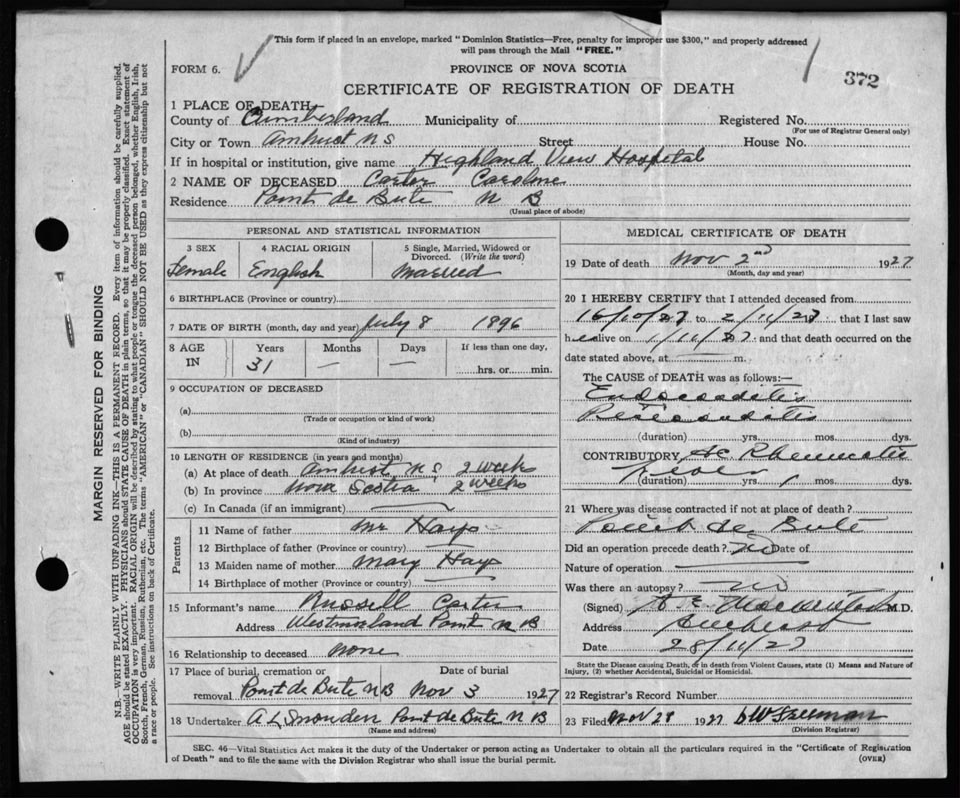 This form if placed in an envelope, marked "Dominion Statistics—Free, penalty for improper use $300," and properly addressed
will pass through the Mail "FREE."
FORM 6.
PROVINCE OF NOVA SCOTIA
372
CERTIFICATE OF REGISTRATION OF DEATH
1 PLACE OF DEATH
County of Cumberland Municipality of Registered No.
(For use of Registrar General only)
City or Town Amherst N S Street House No.
If in hospital or institution, give name Highland View Hospital
2 NAME OF DECEASED Carter Caroline
Residence Point de Bute N B
(Usual place of abode)
PERSONAL AND STATISTICAL INFORMATION
3 SEX 4 RACIAL ORIGIN 5 Single, Married, Widowed or
Divorced. (Write the word)
Female English Married
6 BIRTHPLACE (Province or country)
7 DATE OF BIRTH (month, day and year) July 8 1896
8 AGE Years Months Days If less than one day,
IN 31 — — hrs. or min.
9 OCCUPATION OF DECEASED
(a)
(Trade or occupation or kind of work)
(b)
(Kind of industry)
10 LENGTH OF RESIDENCE (in years and months)
(a) At place of death Amherst N S 2 weeks
(b) In province Nova Scotia 2 weeks
(c) In Canada (if an immigrant)
Parents
11 Name of father Mr Hays
12 Birthplace of father (Province or country)
13 Maiden name of mother Mary Hays
14 Birthplace of mother (Province or country)
15 Informant's name Russell Carter
Address Westmorland Point N B
16 Relationship to deceased None
17 Place of burial, cremation or Date of burial
removal Point de Bute N B Nov 3 1927
18 Undertaker A L Snowden Point de Bute N B
(Name and address)
MEDICAL CERTIFICATE OF DEATH
19 Date of death Nov 2nd 1927
(Month, day and year)
20 I HEREBY CERTIFY that I attended deceased from
16/10/27 to 2/11/27 that I last saw
h er alive on 1/11/27 and that death occurred on the
date stated above, at m.
The CAUSE of DEATH was as follows:—
Endocarditis
Pericarditis
(duration) yrs. mos. dys.
CONTRIBUTORY Ac Rheumatic
Fever
(duration) yrs. 1 mos. dys.
21 Where was disease contracted if not at place of death?
Point de Bute
Did an operation precede death? No Date of
Nature of operation
Was there an autopsy? No
(Signed) M.D.
Address Amherst
Date 28/11/27
State the Disease causing Death, or in death from Violent Causes, state (1) Means and Nature of
Injury, (2) whether Accidental, Suicidal or Homicidal.
22 Registrar's Record Number
23 Filed Nov 28 1927 Freeman
(Division Registrar)
SEC. 46—Vital Statistics Act makes it the duty of the Undertaker or person acting as Undertaker to obtain all the particulars required in the "Certificate of Registration
of Death" and to file the same with the Division Registrar who shall issue the burial permit.
(OVER)
MARGIN RESERVED FOR BINDING
N.B.—WRITE PLAINLY WITH UNFADING INK—THIS IS A PERMANENT RECORD. Every item of information should be carefully supplied.
AGE should be stated EXACTLY. PHYSICIANS should STATE CAUSE OF DEATH in plain terms, so that it may be properly classified. Exact statement of
OCCUPATION is very important. RACIAL ORIGIN will be described by stating to what people or tongue the deceased person belonged, whether English, Irish,
Scotch, French, German, Russian, Ruthenian, etc. The terms "AMERICAN" or "CANADIAN" SHOULD NOT BE USED as they express citizenship but not
a race or people. See instructions on back of Certificate.